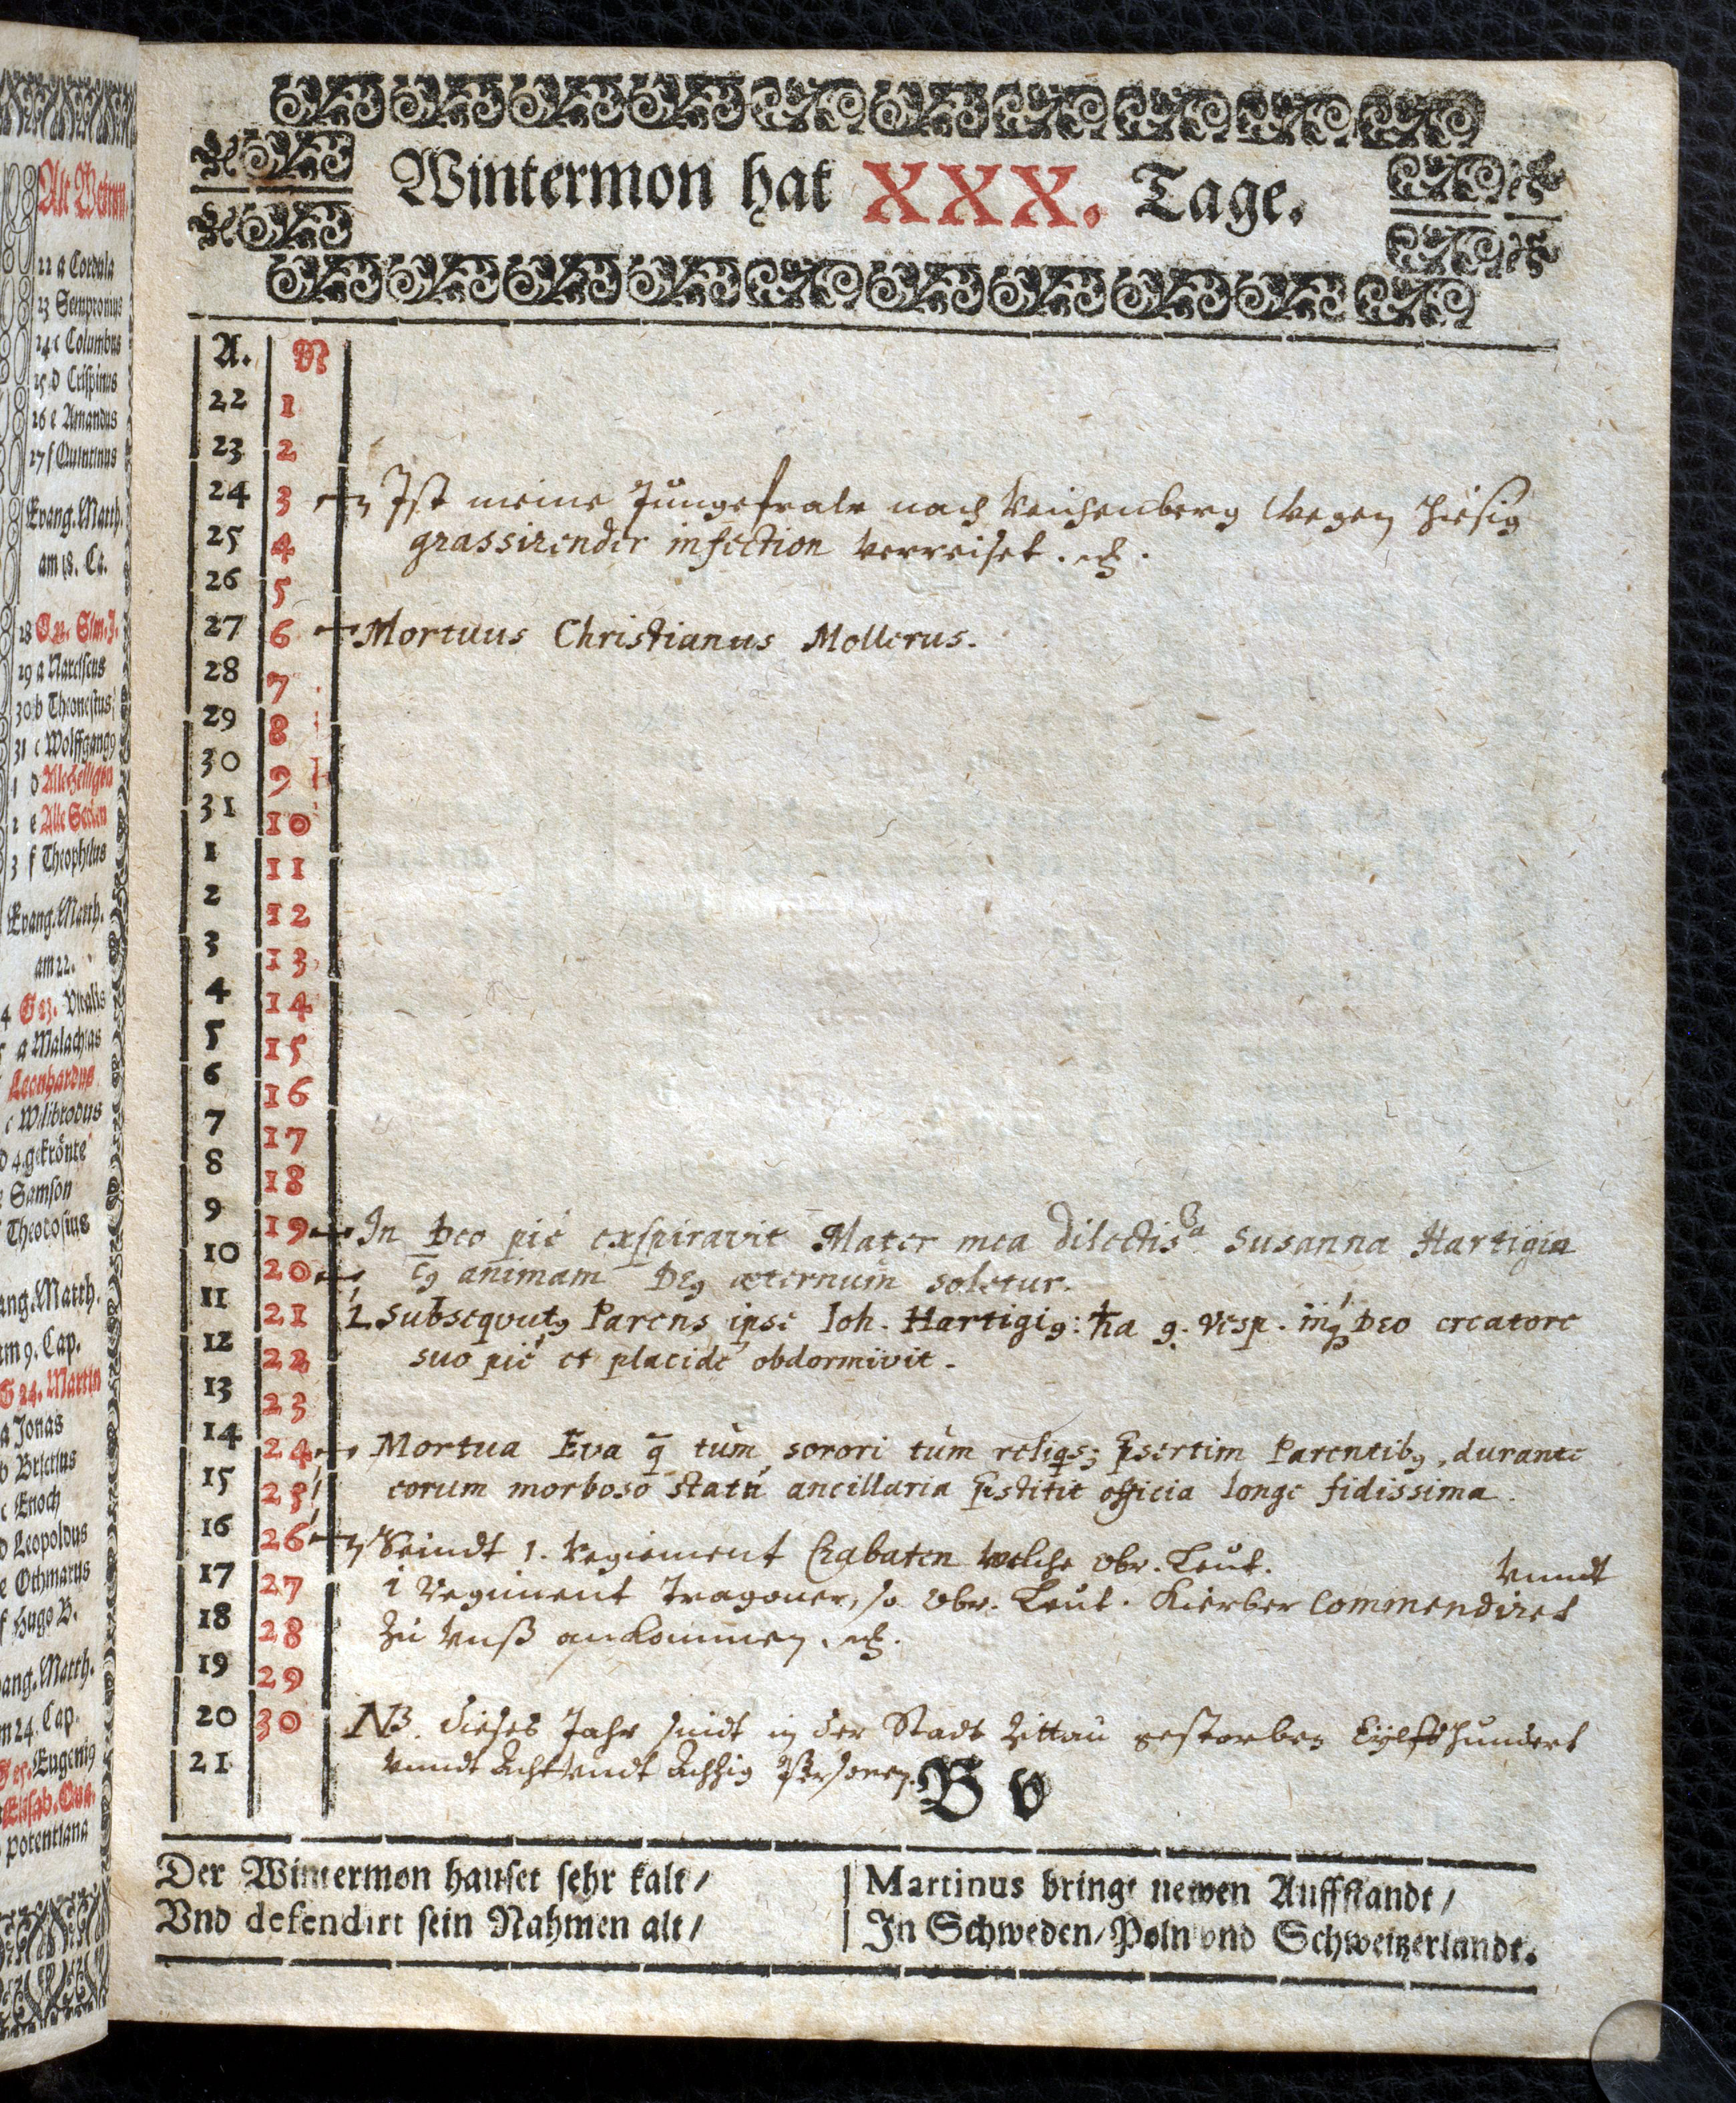 Alt Weinm.
22 a Cordula
23 Sempronius
24 c Columbus
25 d Crispinus
26 e Amandus
27 f Quintinus
Evang. Matth.
am 18. Ca.
28 G 22. Sim. J.
29 a Narcissus
30 b Theonestus
31 c Wolffgangꝰ
1 d Allerheiligen
2 e Alle Seelen
3 f Theophilus
Evang. Matth.
am 22.
4 G 23. Vitalis
5 a Malachias
Leonhardus
c Wilibrodus
d 4. gekrönte
e Samson
f Theodosius
ang. Matth.
am 9. Cap.
G 24. Martin
a Jonas
b Brictius
c Enoch
d Leopoldus
e Othmarus
f Hugo B.
ang. Matth.
m 24. Cap.
Eugeniꝰ
Elisab.
Potentiana
Wintermon hat XXX. Tage.
A. N
22 1
23 2
24 3 Ist meine Jungefraw nach Reichenberg wegen hiesig
25 4 grassirender infection verreiset. etc.
26 5
27 6 Mortuus Christianus Mollerus.
28 7
29 8
30 9
31 10
1 11
2 12
3 13
4 14
5 15
6 16
7 17
8 18
9 19 In Deo piè exspiravit Mater mea dilectis.a Susanna Hartigia
10 20 animam Deꝰ æternum soletur.
11 21 Subsequutꝰ Parens ipse Joh. Hartigiꝰ: 9. vesp. Deo creatore
12 22 suo piè et placidè obdormivit.
13 23
14 24 Mortua Eva q̄ tùm sorori tùm reliqs; p̄sertim Parentibꝰ, durante
15 25 eorum morboso statu ancillaria p̄stitit officia longe fidissima.
16 26 Seindt 1. Regiement Crabaten welche Obr. Leut. vnndt
17 27 1 Regiment Tragoner, so Obr. Leut. Kierber Commendiret
18 28 zu vnß ankommen. etc.
19 29
20 30 NB. dieses Jahr seindt in der Stadt Zittau gestorben Eylffhundert
21 vnndt Acht vndt Achzig Personen.
B v
Der Wintermon hauset sehr kalt /
Vnd defendirt sein Nahmen alt /
Martinus bringt newen Auffstandt /
In Schweden / Poln vnd Schweitzerlandt.